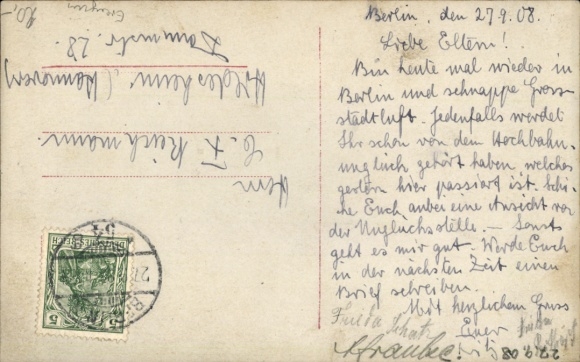 Berlin, den 27.9.08.
Liebe Eltern!
Bin heute mal wieder in
Berlin und schnappe Gross-
stadtluft. Jedenfalls werdet
Ihr schon von dem Hochbahn-
unglück gehört haben welches
gestern hier passiert ist. Schi-
cke Euch anbei eine Ansicht von
der Unglücksstelle. — Sonst
geht es mir gut. Werde Euch
in der nächsten Zeit einen
Brief schreiben.
Mit herzlichem Gruss
Euer
Fritz
Frieda
27.9.08
Herrn
C. F. Reichmann
Hildesheim (Hannover)
Dammstr. 28.
DEUTSCHES REICH
5 5
BERLIN
54
10,-